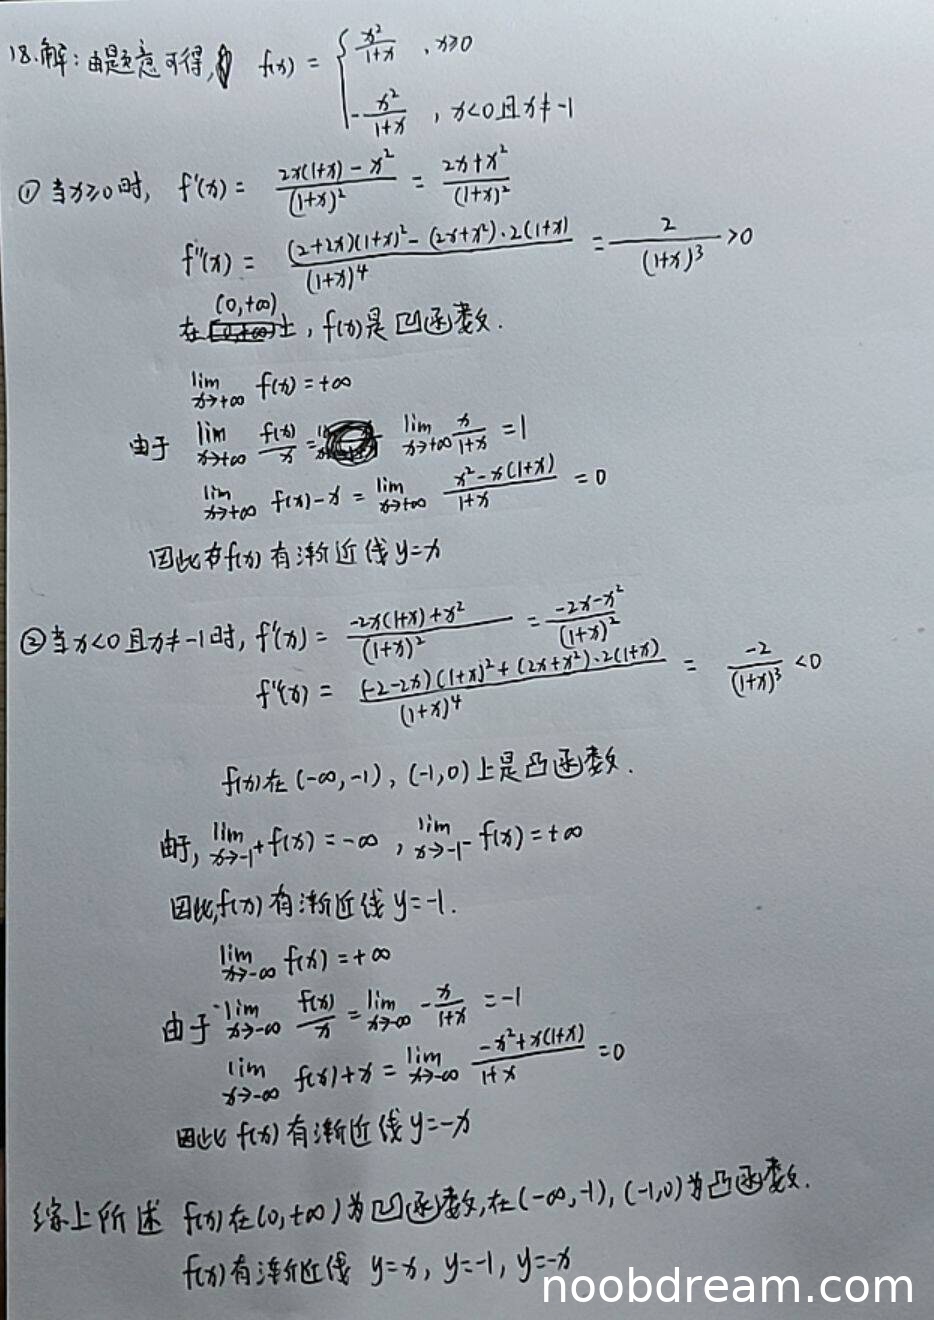 18.解：由题意可得, f(x) = { x²/(1+x) , x≥0
-x²/(1+x) , x<0且x≠-1
① 当x≥0时, f'(x) = (2x(1+x) - x²)/(1+x)² = (2x+x²)/(1+x)²
f''(x) = ((2+2x)(1+x)² - (2x+x²)·2(1+x))/(1+x)⁴ = 2/(1+x)³ >0
在(0,+∞)上, f(x)是凹函数.
lim x→+∞ f(x) = +∞
由于 lim x→+∞ f(x)/x = lim x→+∞ x/(1+x) = 1
lim x→+∞ f(x)-x = lim x→+∞ (x²-x(1+x))/(1+x) = 0
因此 f(x)有渐近线 y=x
② 当x<0且x≠-1时, f'(x) = (-2x(1+x)+x²)/(1+x)² = (-2x-x²)/(1+x)²
f''(x) = ((-2-2x)(1+x)²+(2x+x²)·2(1+x))/(1+x)⁴ = -2/(1+x)³ <0
f(x)在(-∞,-1), (-1,0)上是凸函数.
由于, lim x→-1⁺ f(x) = -∞ , lim x→-1⁻ f(x) = +∞
因此,f(x)有渐近线 y=-1.
lim x→-∞ f(x) = +∞
由于 lim x→-∞ f(x)/x = lim x→-∞ -x/(1+x) = -1
lim x→-∞ f(x)+x = lim x→-∞ (-x²+x(1+x))/(1+x) = 0
因此 f(x)有渐近线 y=-x
综上所述 f(x)在(0,+∞)为凹函数,在(-∞,-1), (-1,0)为凸函数.
f(x)有渐近线 y=x, y=-1, y=-x
noobdream.com